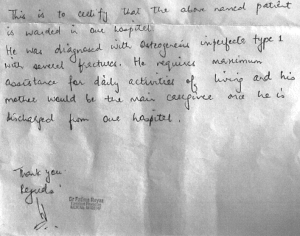 This is to certify that the above named patient
is warded in our hospital.
He was diagnosed with Osteogenesis imperfecta type 1
with several fractures. He requires maximum
assistance for daily activities of living and his
mother would be the main caregiver once he is
discharged from our hospital.
Thank you
Regards